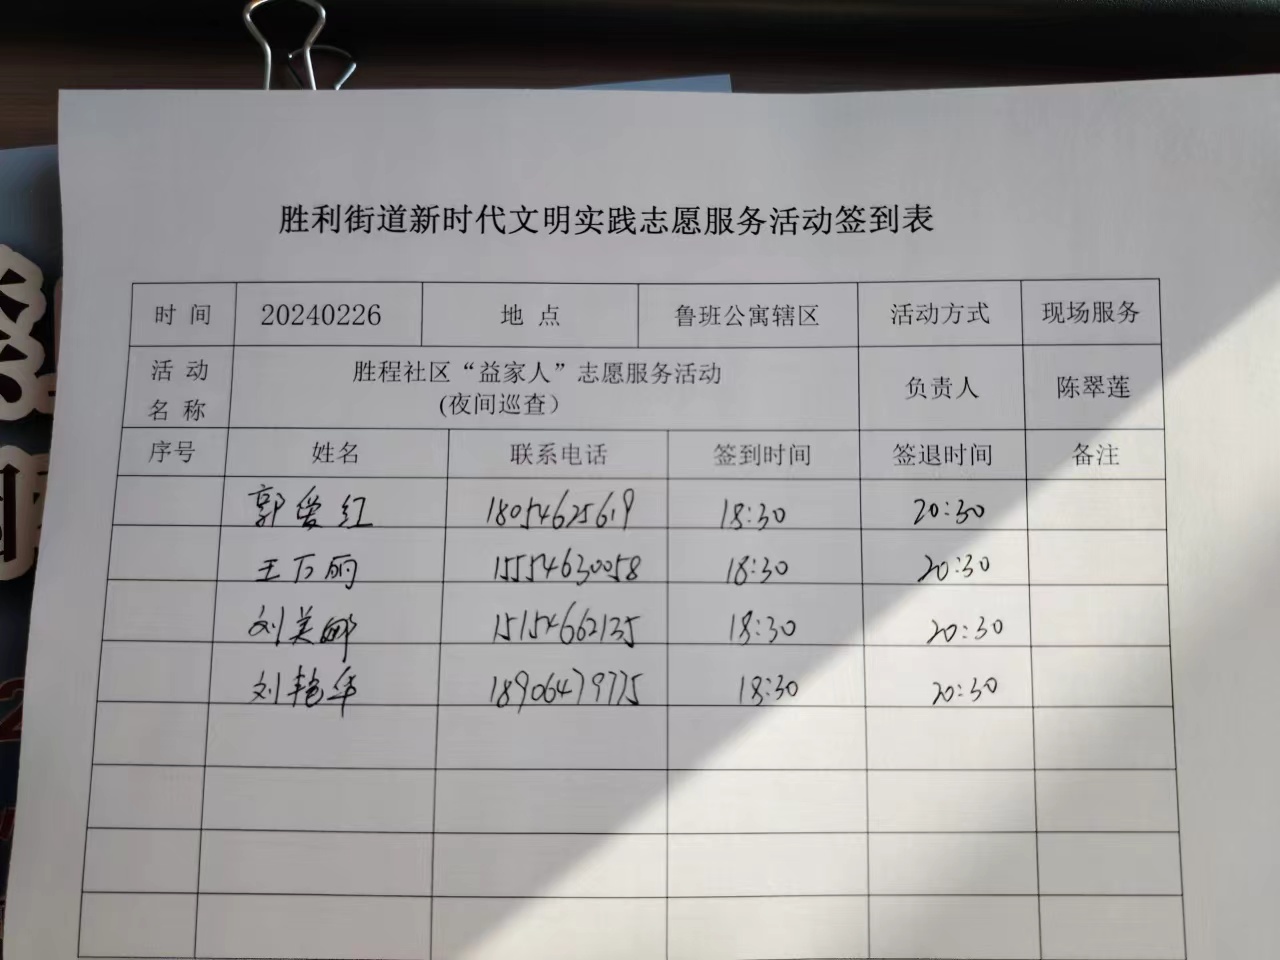 胜利街道新时代文明实践志愿服务活动签到表
时 间 20240226 地 点 鲁班公寓辖区 活动方式 现场服务
活 动 名 称 胜程社区“益家人”志愿服务活动 (夜间巡查) 负责人 陈翠莲
序号 姓名 联系电话 签到时间 签退时间 备注
郭爱红 18054625619 18:30 20:30
王万丽 15554630058 18:30 20:30
刘美娜 15154662135 18:30 20:30
刘艳华 18906479775 18:30 20:30